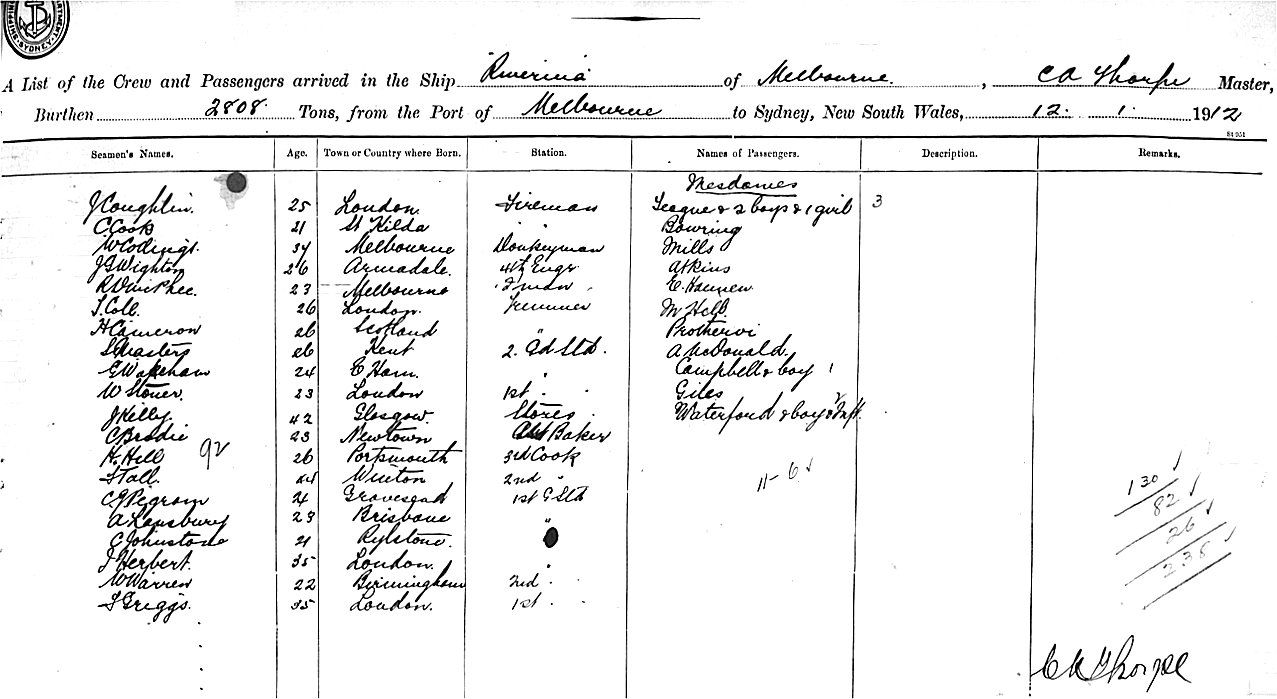 SHIPPING SYDNEY
A List of the Crew and Passengers arrived in the Ship Riverina of Melbourne, C A Thorpe Master,
Burthen 2808 Tons, from the Port of Melbourne to Sydney, New South Wales, 12 1 1912
St 951
Seamen's Names. Age. Town or Country where Born. Station. Names of Passengers. Description. Remarks.
Mesdames
J Coughlin. 25 London. Fireman Teague & 2 boys & 1 girl 3
C. Cook 21 St Kilda " " Bowring
W Codingt. 34 Melbourne Donkeyman Mills
J G Wighton 26 Armadale. 4th Engr Atkins
23 Melbourne F'man E. Hannen
T. Coll. 26 London. Trimmer M Hill.
H Cameron 26 Scotland "
S Masters 26 Kent 2. Sd Std. A McDonald.
G Wakeham 24 E Ham. " Campbell & boy 1
W Stoner. 23 London 1st " Giles
J Kelly. 42 Glasgow. Stores Waterford & boy & Inft. 2
C Brodie 23 Newtown Baker
H. Hill 92 26 Portsmouth 3rd Cook
Stall. 44 Winton 2nd " 11-6 ✓
C J Pegrom 21 Gravesend 1st G Std 130 ✓
A Lansbury 23 Brisbane " 82 ✓
C Johnstone 21 Rylstone. 26 ✓
J Herbert. 35 London. 238 ✓
W Warren 22 Birmingham 2nd "
S Griggs. 35 London. 1st "
C A Thorpe